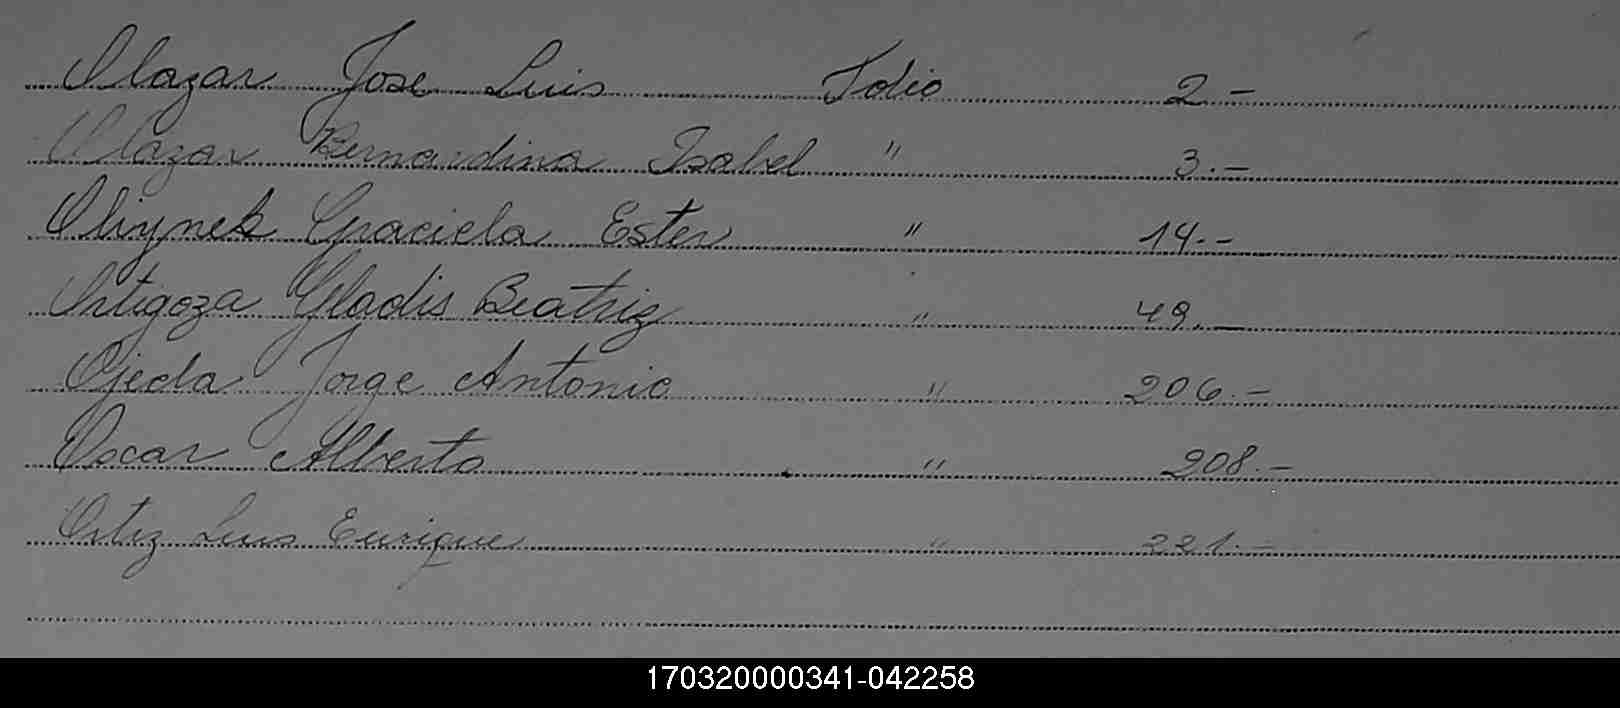 Olazar Jose Luis Folio 2 -
Olazar Bernardina Isabel " 3.-
Oliynek Graciela Ester " 14.-
Ortigoza Gladis Beatriz " 49.-
Ojeda Jorge Antonio " 206.-
Oscar Alberto " 208.-
Ortiz Luis Enrique " 221.-
170320000341-042258